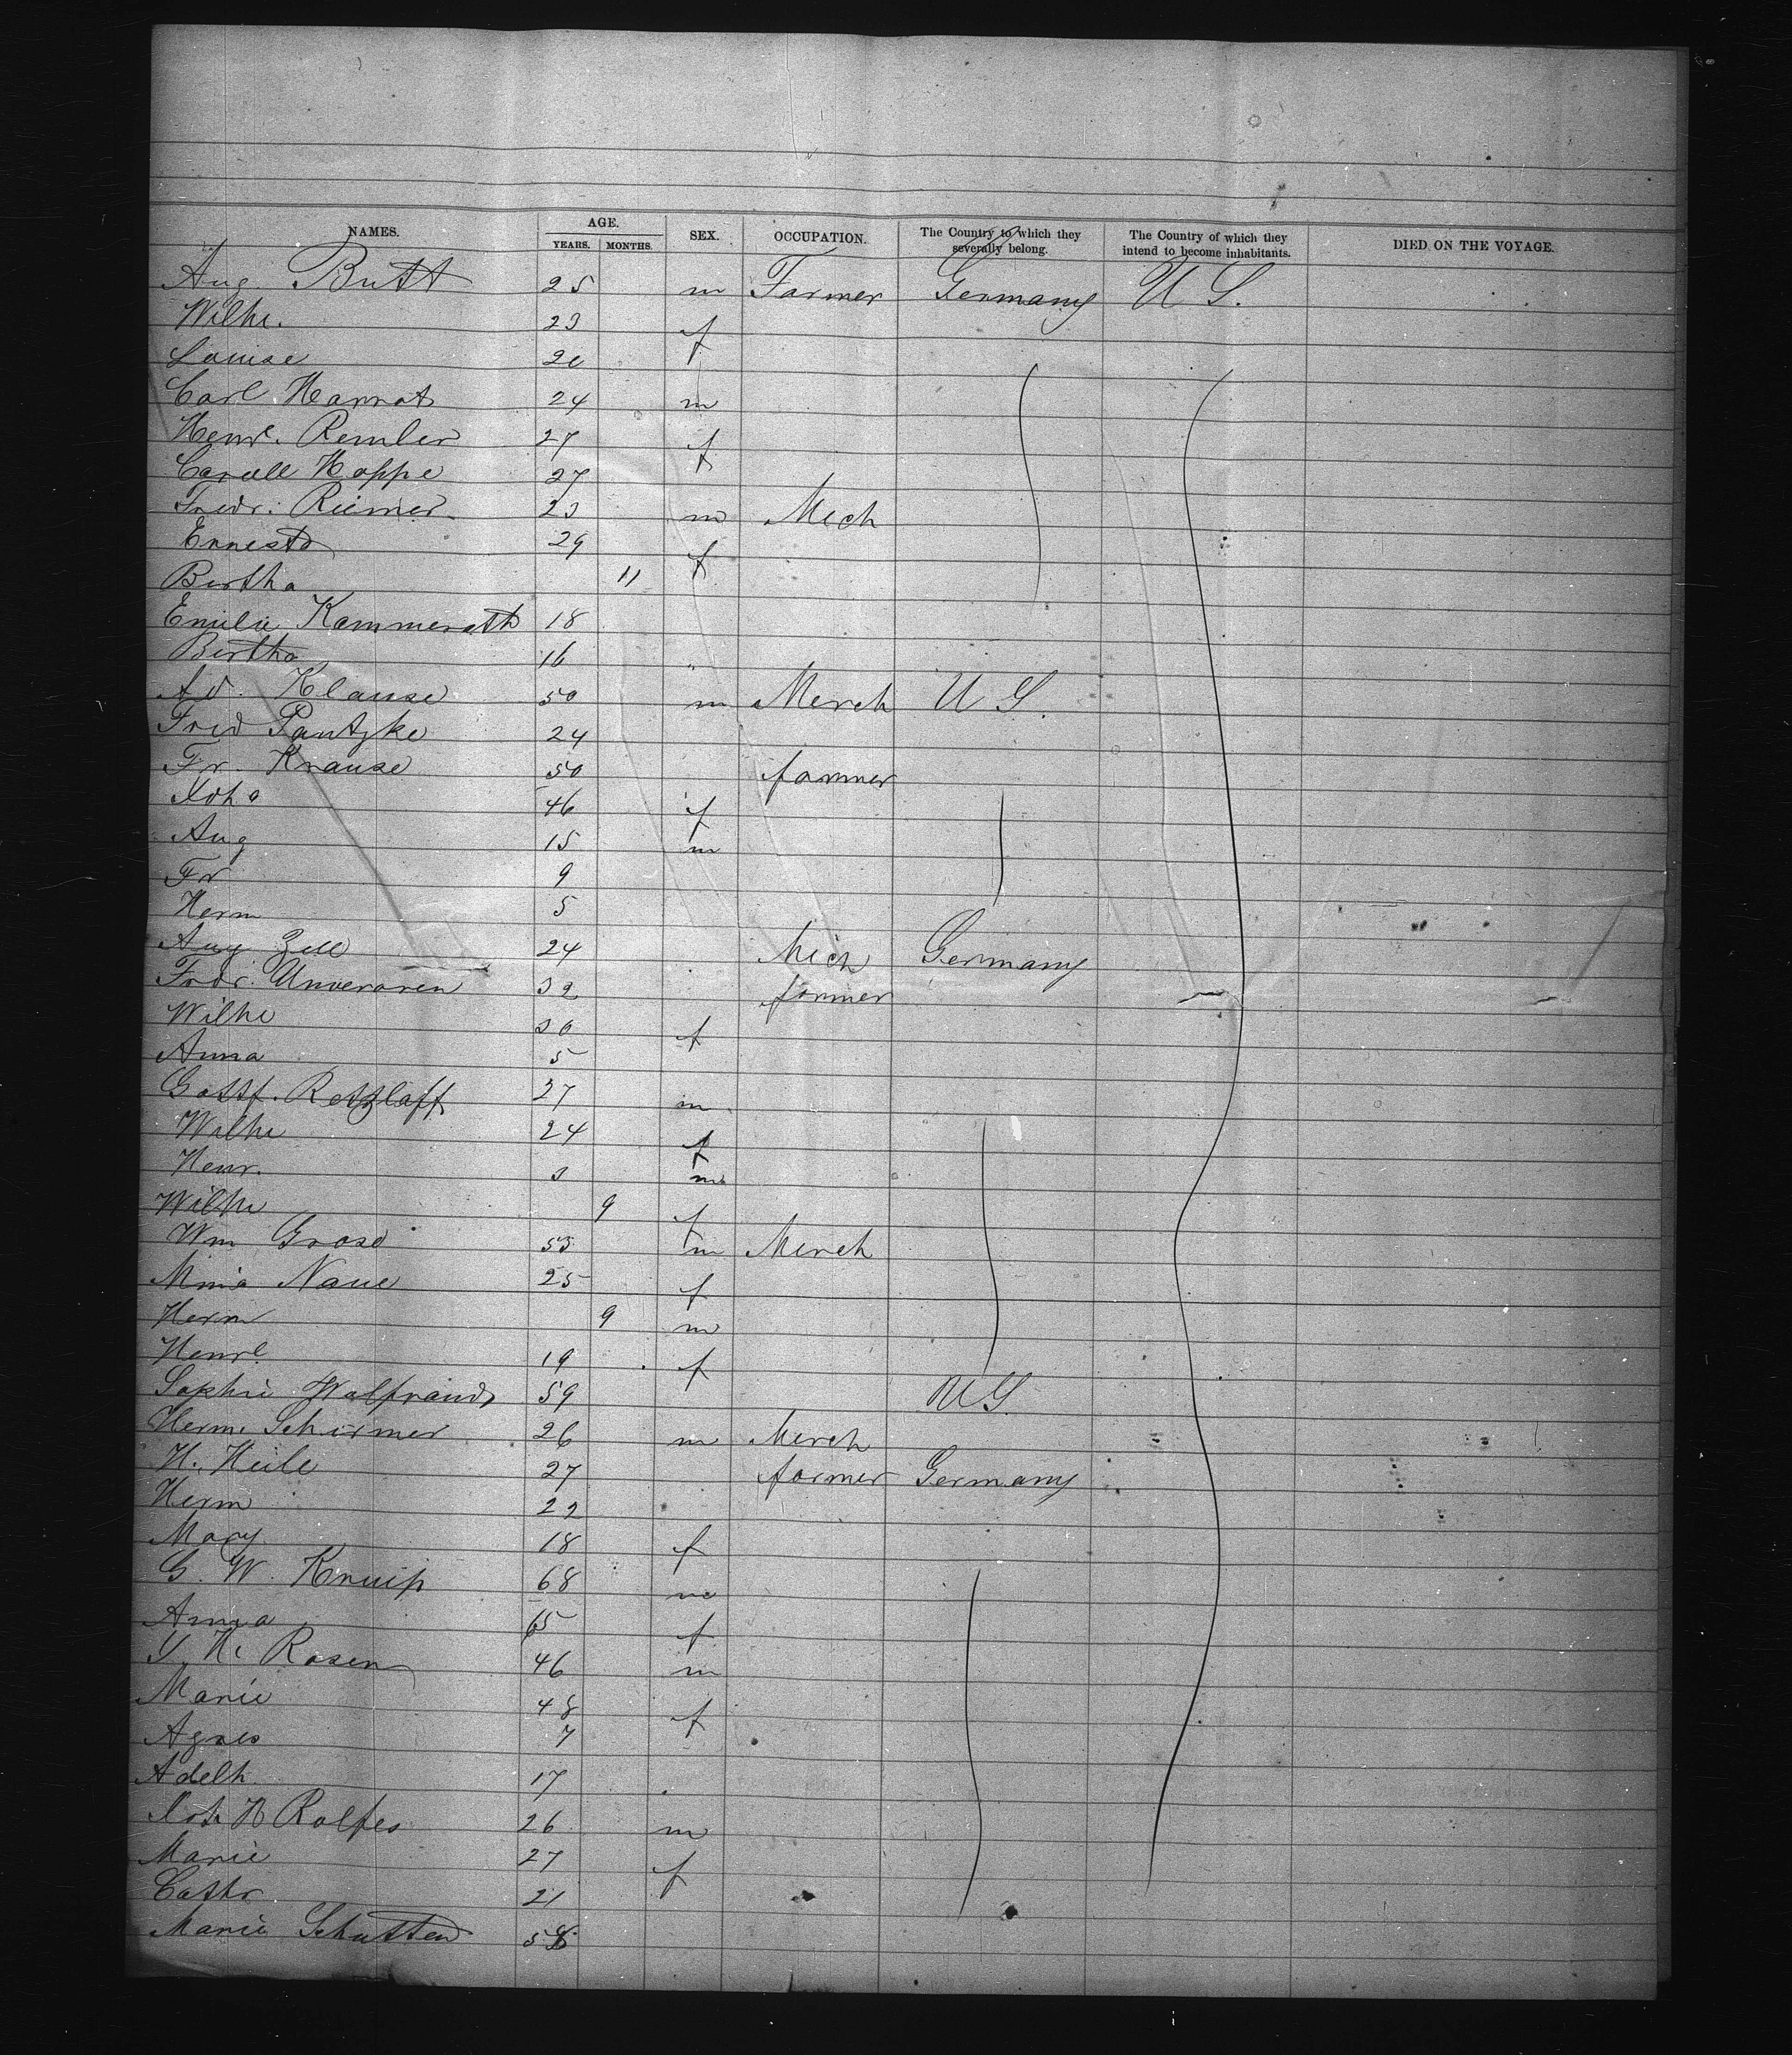 NAMES. AGE. YEARS. MONTHS. SEX. OCCUPATION. The Country to which they severally belong. The Country of which they intend to become inhabitants. DIED ON THE VOYAGE.
Aug. Butt 25 m Farmer Germany U S.
Wilhe. 23 f
Louise 20
Carl Harrat 24 m
Henr. Remler 27 f
Hoppe 27
Fredr. Riemer 23 m Mech
Ernest 29 f
Bertha 11
Emilie Kammerath 18
Bertha 16 "
Ad. Klause 50 m Merch U S.
Fred Pantzke 24
Fr. Krause 50 farmer
46 f
Aug 15 m
Fr 9
Herm 5
Aug Zell 24 Mech Germany
Fredr. 32 farmer
Wilhe 30 f
Anna 5
Gottf. Retzlaff 27 m
Wilhe 24 f
Henr. 3 m
Wilhe 9 f
Wm Grose 55 m Merch
Naue 25 f
Herm 9 m
Henrl 19 f
Sophie 59 U S
Herm. Schirmer 26 m Merch
H. Heile 27 farmer Germany
Herm 22
Mary 18 f
G. W. Knuip 68 m
Anna 65 f
H. Rosen 46 m
Marie 48 f
Agnes 7
Adelh 17
Joh H Rolfes 26 m
Marie 27 f
Cathr 21
Marie Schutten